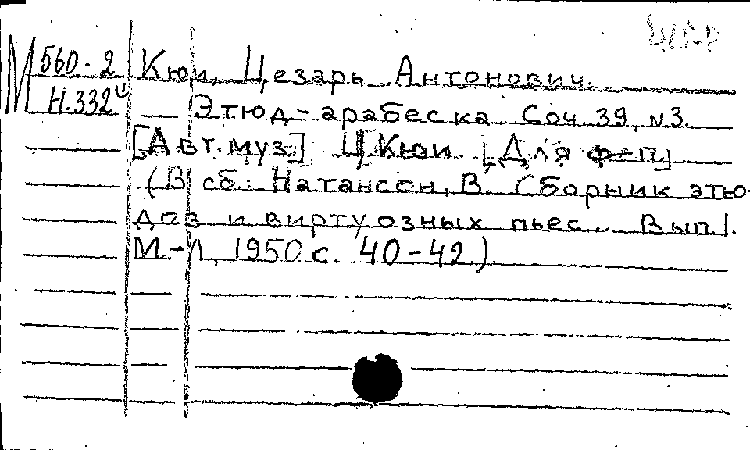 М 560-2 Кюи, Цезарь Антонович.
Н.332ч Этюд-арабеска Соч 39, №3.
[Авт. муз.] Ц Кюи [Для ф-п]
(В сб: Натансон, В. Сборник этю-
дов и виртуозных пьес. Вып 1.
М.-Л, 1950 с. 40-42.)